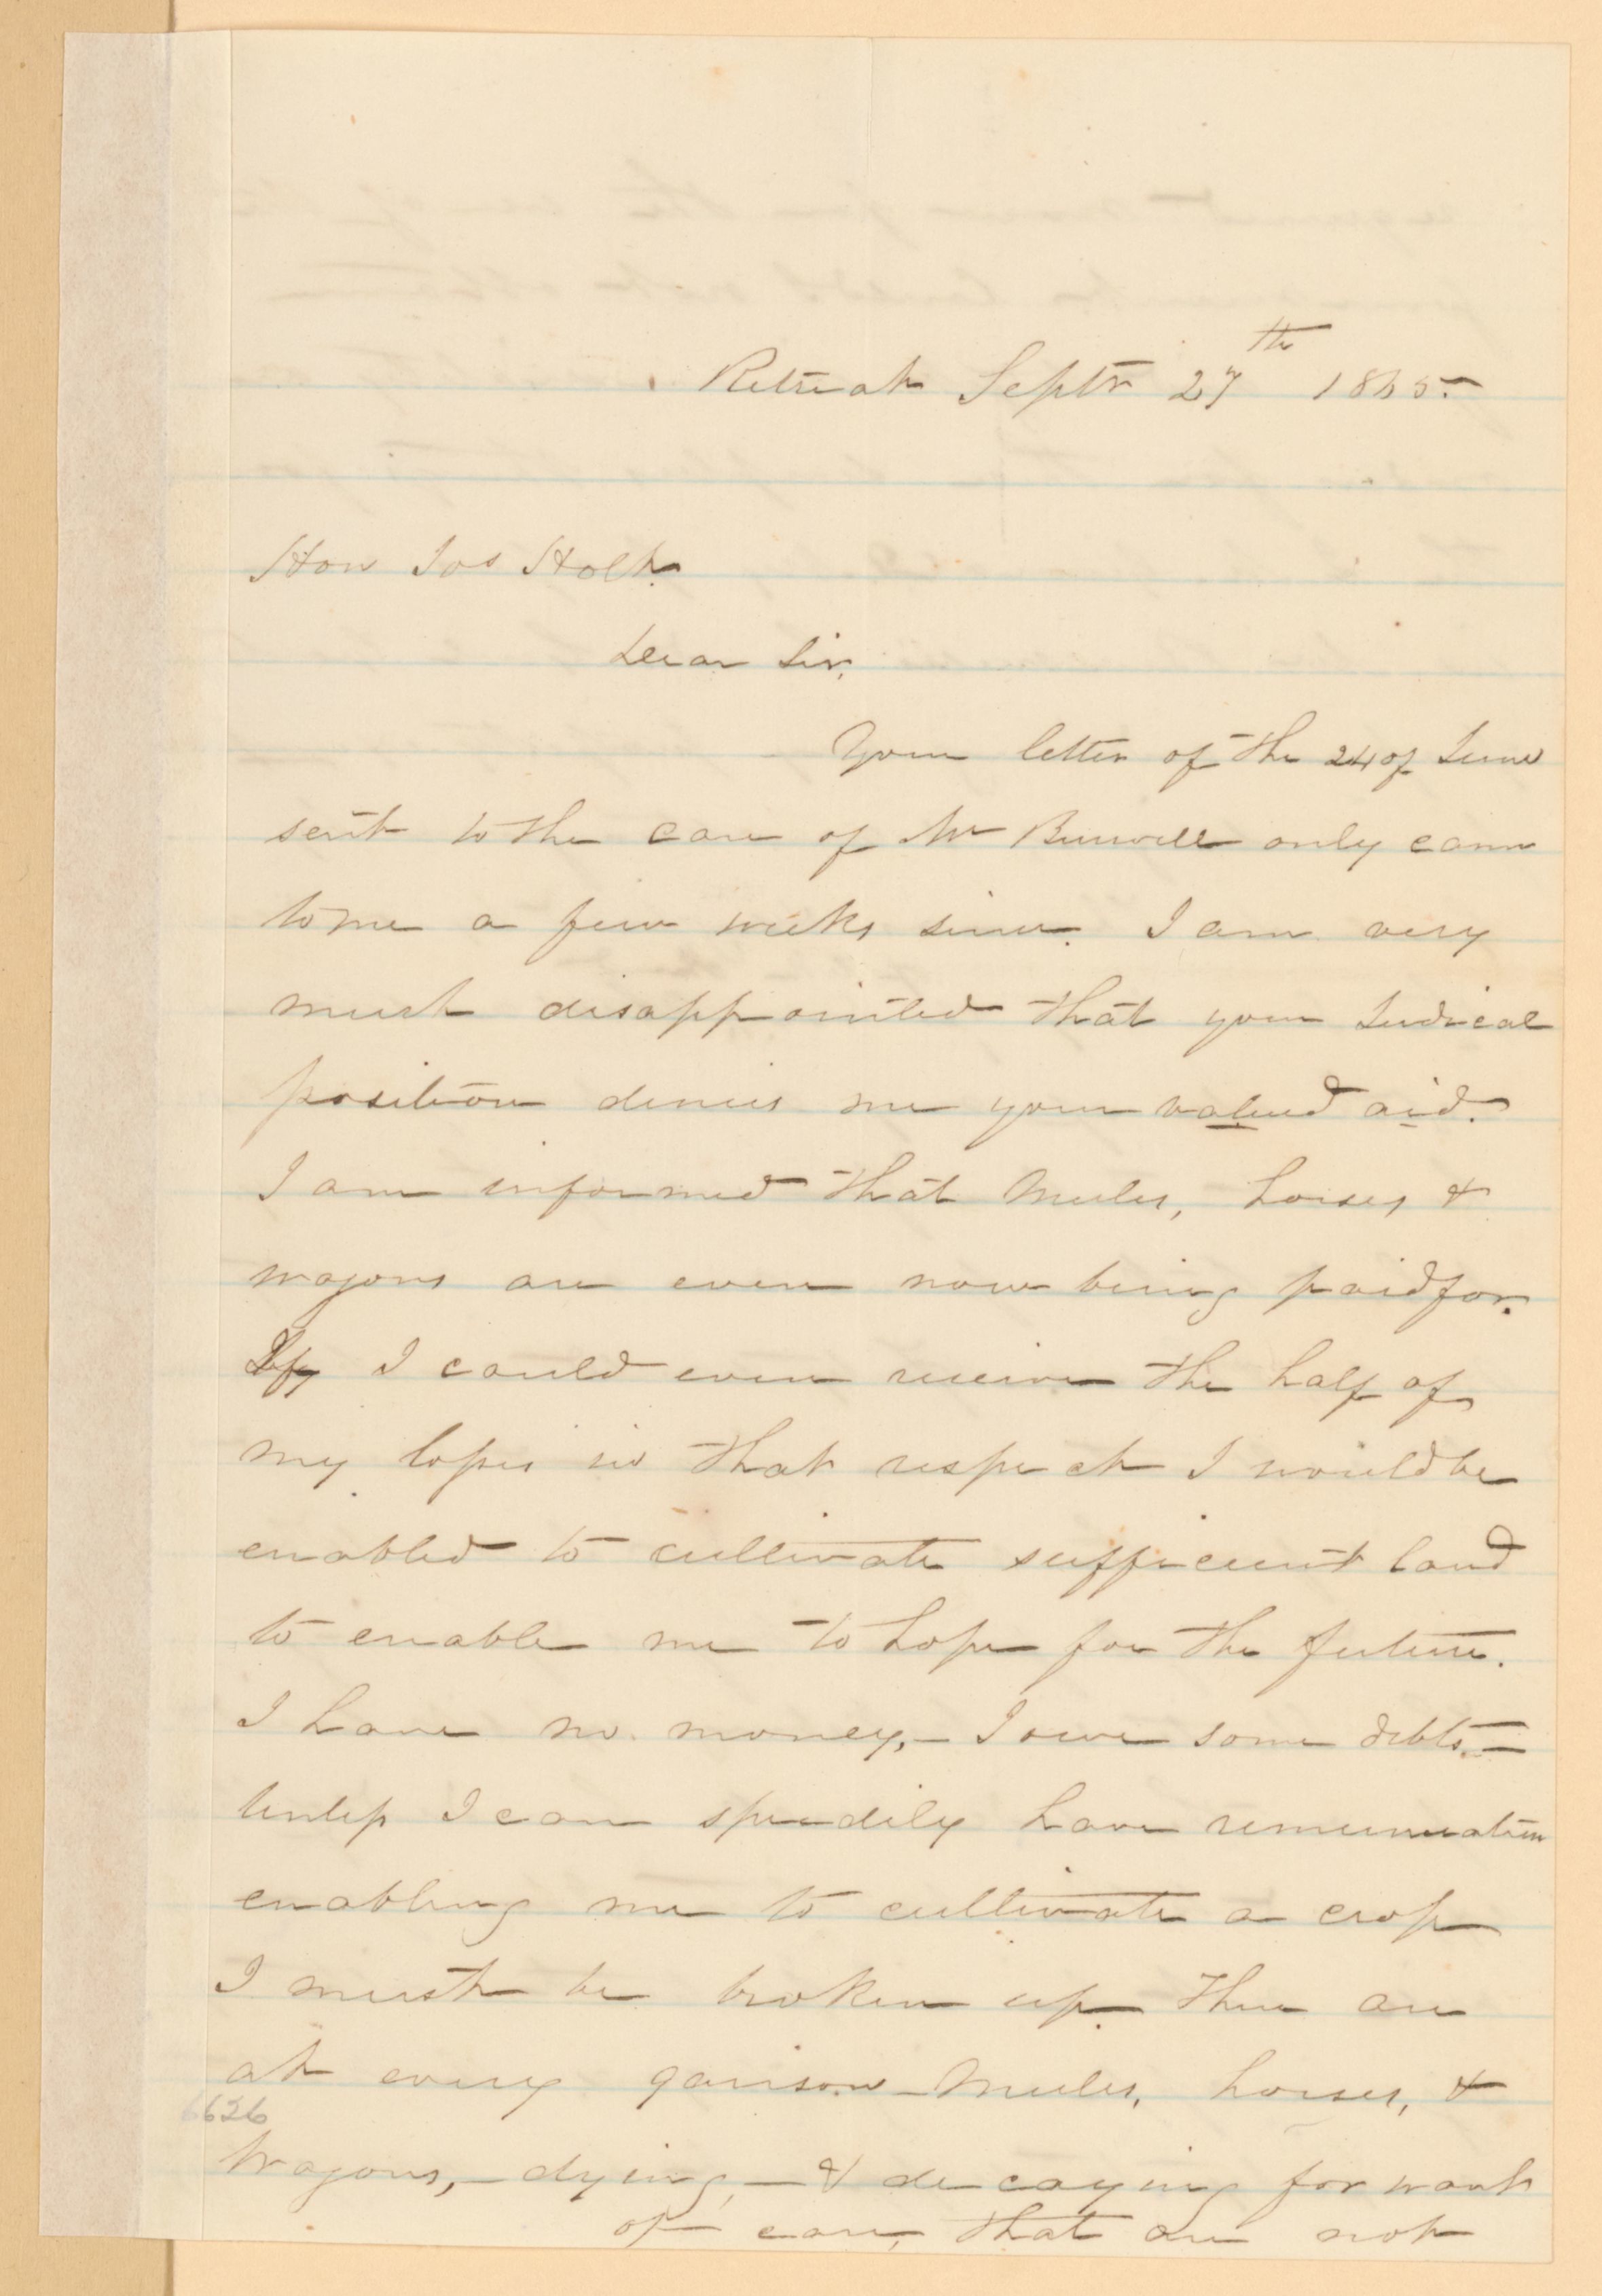 Retreat Septr 27th 1865.
Hon Jos Holt.
Dear Sir,
Your letter of the 24 of June
sent to the care of Mr Burwell only came
to me a few weeks since. I am very
much disappointed that your Judical
position denies me your valued aid.
I am informed that Mules, horses &
wagons are even now being paid for.
If I could even receive the half of
my losses in that respect I would be
enabled to cultivate sufficient land
to enable me to hope for the future.
I have no money, – I owe some debts. –
Unless I can speedily have remuneration
enabling me to cultivate a crop
I must be broken up. There are
at every garison – Mules, horses, &
Wagons, – dying, – & decaying for want
of care, that are not
6626